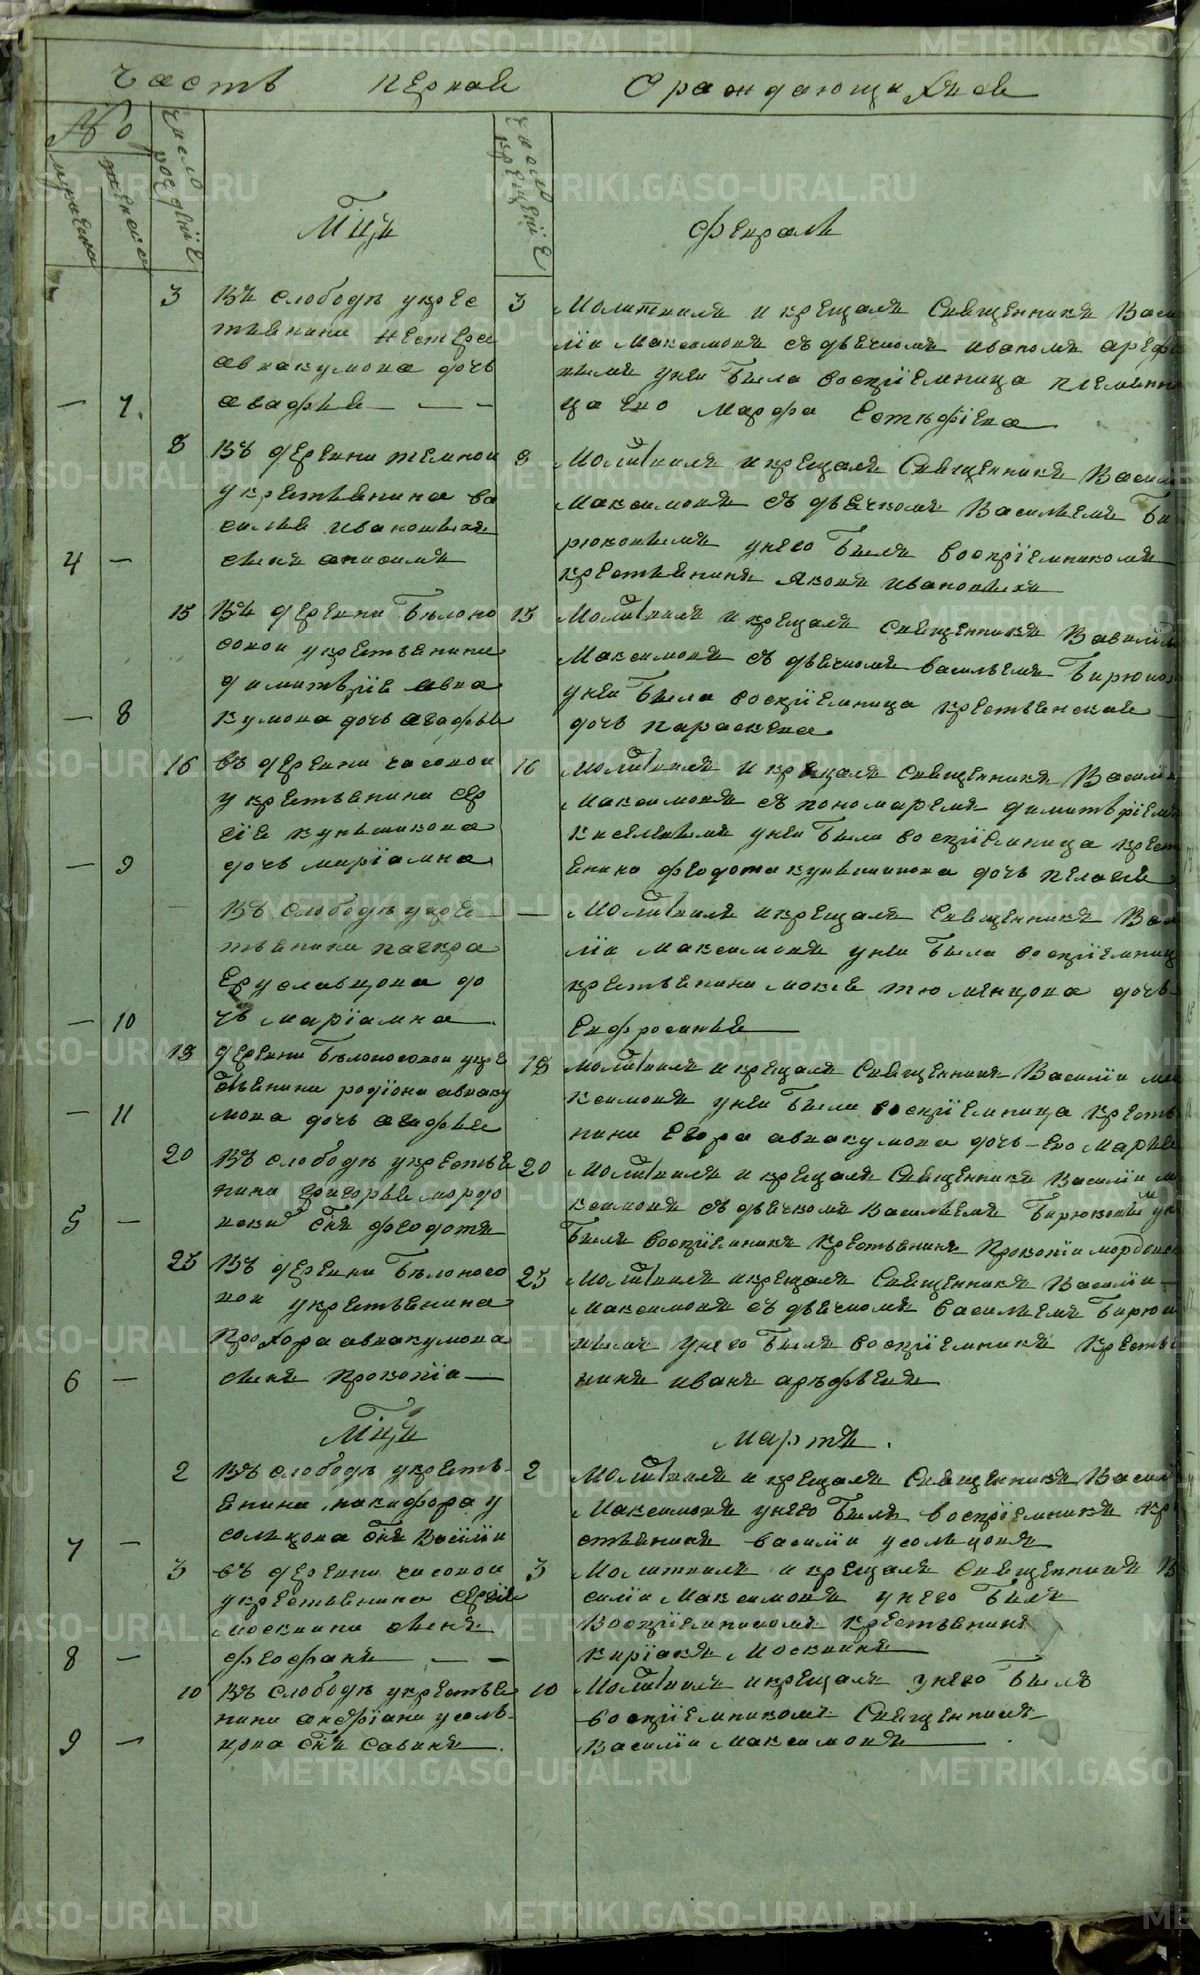 часть первая О раждающихся
№
мужеска
женска
число рождения
число крещения
Мцъ февраль
3 Въ слободѣ укрес
тьянина нестера
авакумова дочь
— 7. агафья — — —
3 Молитвилъ и крещалъ Священникъ Васи
лiи Максимовъ съ дьячкомъ иваномъ арефь
евымъ унеи была воспрiемница племянни
ца его марфа
8 Въ деревни темнои
укрестьянина ва
силья
4 — сынъ анисимъ
8 Молитвилъ и крещалъ Священникъ Васили
Максимовъ съ дьячкомъ Васильемъ Би
рюковымъ унего былъ воспрiемникомъ
крестьянинъ яковъ
15 Въ деревни бѣлоно
сокои укрестьянина
димитрiя авва
— 8 кумова дочь агафья
15 Молитвилъ и крещалъ священникъ Василiи
Максимовъ съ дьячкомъ васильемъ бирюков
унеи была воспрiемница крестьянская
дочь параскева
16 въ деревни часовои
укрестьянина сер
гiя кунщикова
— 9 дочь марiамна
16 молитвилъ и крещалъ священникъ Василiи
Максимовъ съ пономаремъ димитрiемъ
киселевымъ унеи была воспрiемница крест
янина федота кунщикова дочь пелагея
— Въ слободѣ укрес
тьянина
Еруславцова до
— 10 чь марiамна
— Молитвилъ и крещалъ священникъ Васи
лiи Максимовъ унеи была воспрiемниц
крестьянина мокея тюменцова дочь
Евфросинья
18 деревни бѣлоносокои укре
стьянина родiона авваку
— 11 мова дочь агафья
18 молитвилъ и крещалъ Священникъ Василiи ма
ксимовъ унеи была воспрiемница крестья
нина Егора авакумова дочь его марья
20 Въ слободѣ укрестья
нина григорья мордо
5 — вскаго снъ федотъ
20 Молитвилъ и крещалъ Священникъ Василiи ма
ксимовъ съ дьячкомъ Васильемъ Бирюковымъ ун
былъ воспрiемникъ крестьянинъ Прокопiи мордовск
25 Въ деревни бѣлоносо
кои укрестьянина
прохора авакумова
6 — сынъ прокопiи —
25 Молитвилъ и крещалъ Священникъ Василiи
Максимовъ съ дьячкомъ васильемъ бирюко
вымъ унего былъ воспрiемникъ крестья
нинъ иванъ арефьевъ
Мцъ мартъ.
2 Въ слободѣ укресть
янина никифора у
7 — сольцова снъ Василiи
2 Молитвилъ и крещалъ Священникъ Васил
Максимовъ унего былъ воспрiемникъ кр
стьянинъ василiи усольцовъ
3 въ деревни часовои
укрестьянина сергiя
москвина сынъ
8 — феофанъ — —
3 Молитвилъ и крещалъ Священникъ В
силiи Максимовъ унего былъ
воспрiемникомъ крестьянинъ
кирiакъ Москвинъ
10 Въ слободѣ укрестья
нина андрiана усоль
9 — цова снъ Савинъ
10 Молитвилъ и крещалъ унего былъ
воспрiемникомъ Священникъ
Василiи Максимовъ
METRIKI.GASO-URAL.RU